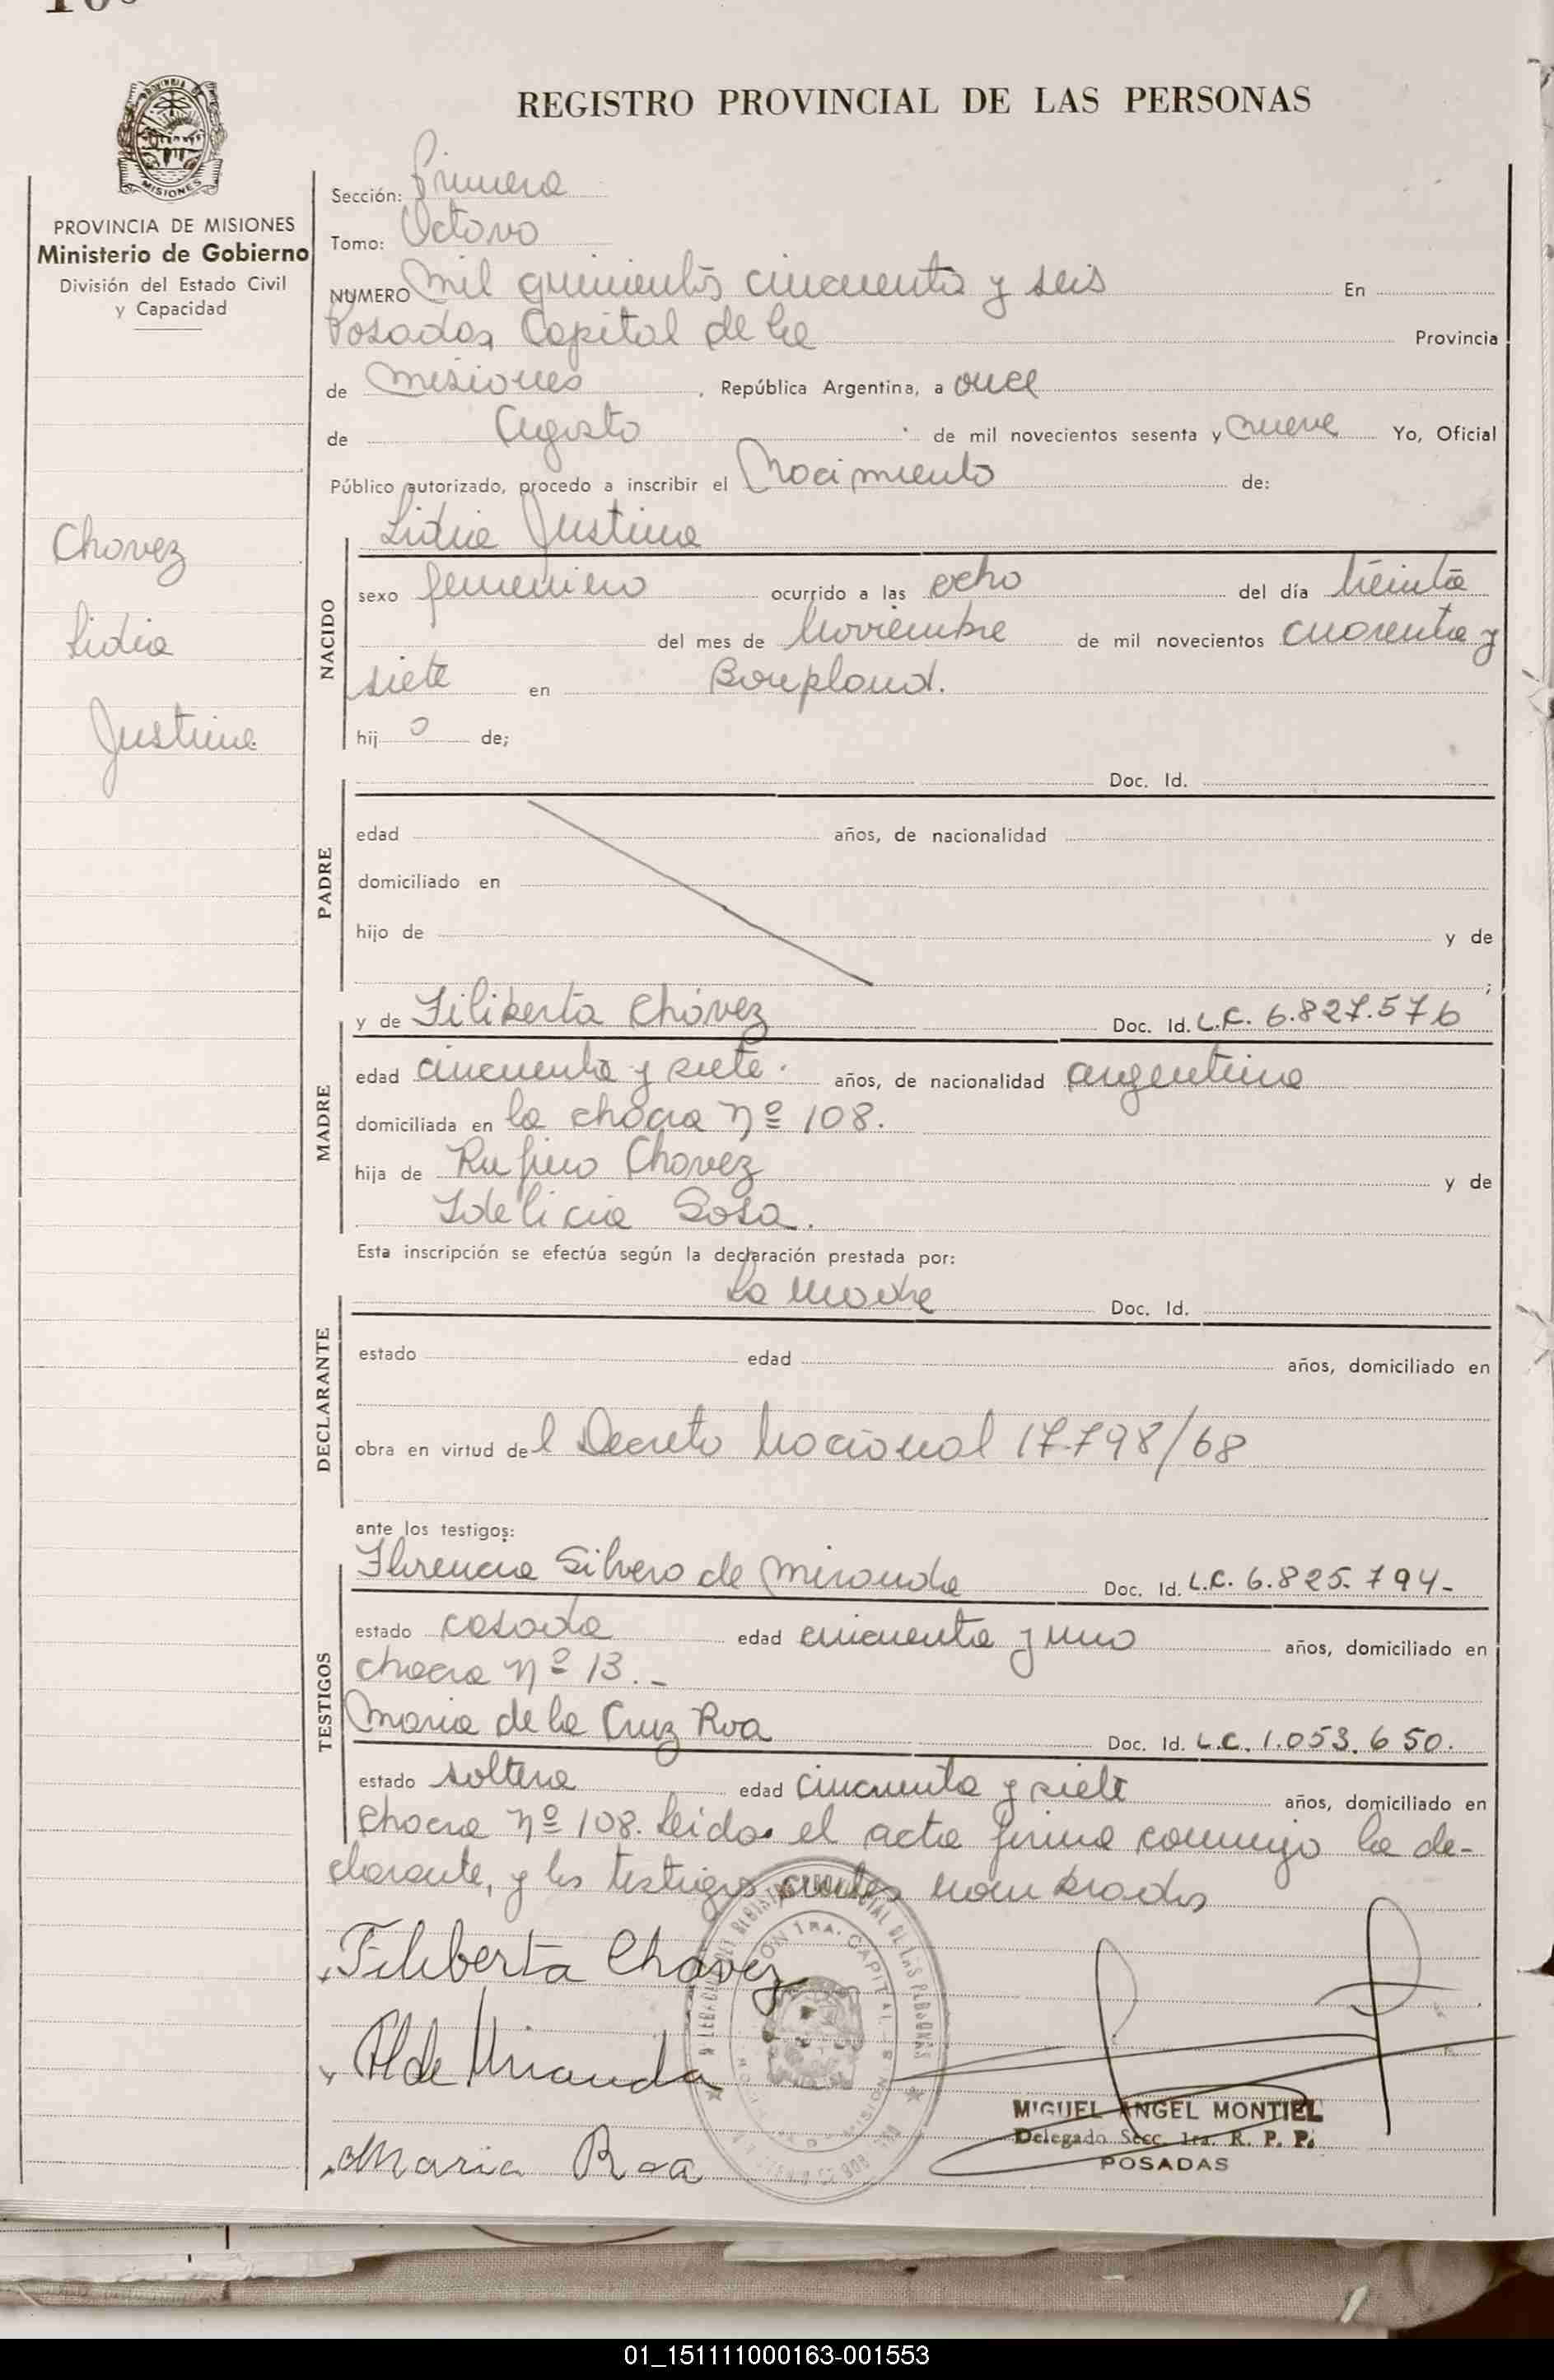 REGISTRO PROVINCIAL DE LAS PERSONAS
MISIONES
PROVINCIA DE MISIONES
Ministerio de Gobierno
División del Estado Civil
y Capacidad
Chavez
Lidia
Justina
Sección: Primera
Tomo: Octavo
NUMERO Mil quinientos cincuenta y seis En
Posadas, Capital de la Provincia
de Misiones, República Argentina, a once
de Agosto de mil novecientos sesenta y nueve Yo, Oficial
Público autorizado, procedo a inscribir el Nacimiento de:
Lidia Justina
NACIDO
sexo femenino ocurrido a las ocho del día treinta
del mes de Noviembre de mil novecientos cuarenta y
siete en Bonpland.
hij a de;
PADRE
Doc. Id.
edad años, de nacionalidad
domiciliado en
hijo de y de
;
MADRE
y de Filiberta Chávez Doc. Id. L.C. 6.827.576
edad cincuenta y siete. años, de nacionalidad argentina
domiciliada en la chacra Nº 108.
hija de Rufino Chavez y de
Idelicia Sosa.
Esta inscripción se efectúa según la declaración prestada por:
DECLARANTE
La Madre Doc. Id.
estado edad años, domiciliado en
obra en virtud del Decreto Nacional 17.798/68
ante los testigos:
TESTIGOS
Florencia Silvero de Miranda Doc. Id. L.C. 6.825.794-
estado casada edad cincuenta y uno años, domiciliado en
chacra Nº 13.-
Maria de la Cruz Roa Doc. Id. L.C. 1.053.650.
estado soltera edad cincuenta y siete años, domiciliado en
chacra Nº 108. Leida el acta firma conmigo la de-
clarante, y los testigos antes nombrados
Filiberta Chávez
de Miranda
Maria Roa
MIGUEL ANGEL MONTIEL
Delegado Secc. 1ra. R. P. P.
POSADAS
01_151111000163-001553